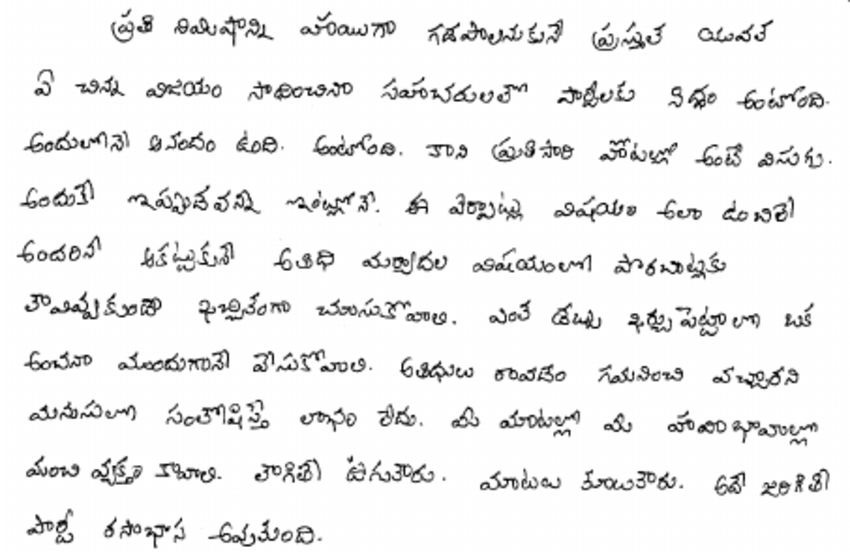 ప్రతి నిమిషాన్ని హాయిగా గడపాలనుకునే ప్రస్తుత యువత
ఏ చిన్న విజయం సాధించినా సహచరులతో పార్టీలకు సిద్ధం అంటోంది.
అందులోనే ఆనందం ఉంది. అంటోంది. కాని ప్రతిసారి హోటల్లో అంటే విసుగు.
అందుకే ఇప్పుడివన్ని ఇంట్లోనే. ఈ ఏర్పాట్ల విషయం ఎలా ఉంచితే
అందరినీ ఆకట్టుకునే అతిథి మర్యాదల విషయంలో పొరబాట్లకు
తావివ్వకుండా ఖచ్చితంగా చూసుకోవాలి. ఎంత డబ్బు ఖర్చు పెట్టాలో ఒక
అంచనా ముందుగానే వేసుకోవాలి. అతిథులు రావడం గమనించి వచ్చారని
మనసులో సంతోషిస్తే లాభం లేదు. మీ మాటల్లో మీ హావభావాల్లో
మంచి వ్యక్తం కావాలి. తాగితే ఊగుతారు. మాటలు తూలుతారు. అదే జరిగితే
పార్టీ రసాభాస అవుతుంది.